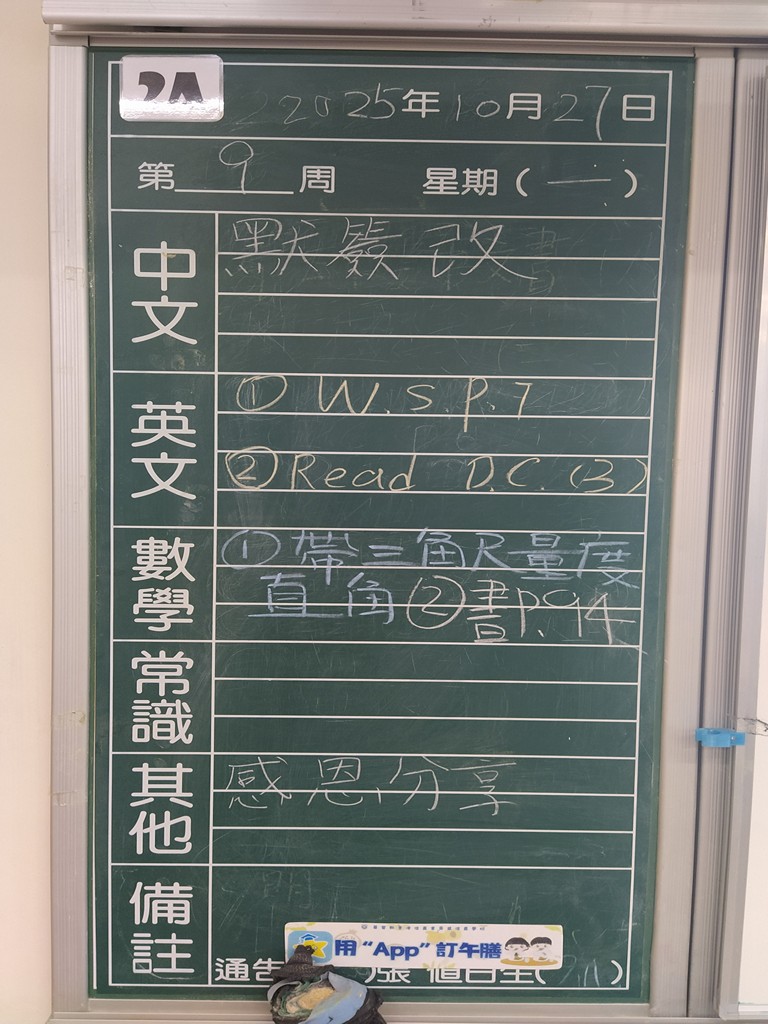 2A
2025年10月27日
第9周 星期(一)
中文 默簽改
英文 ① W.S.P.7
② Read D.C.(3)
數學 ①帶三角尺量度
直角②書P.94
常識
其他 感恩分享
備註
用“App”訂午膳
通告 張 值日生( )